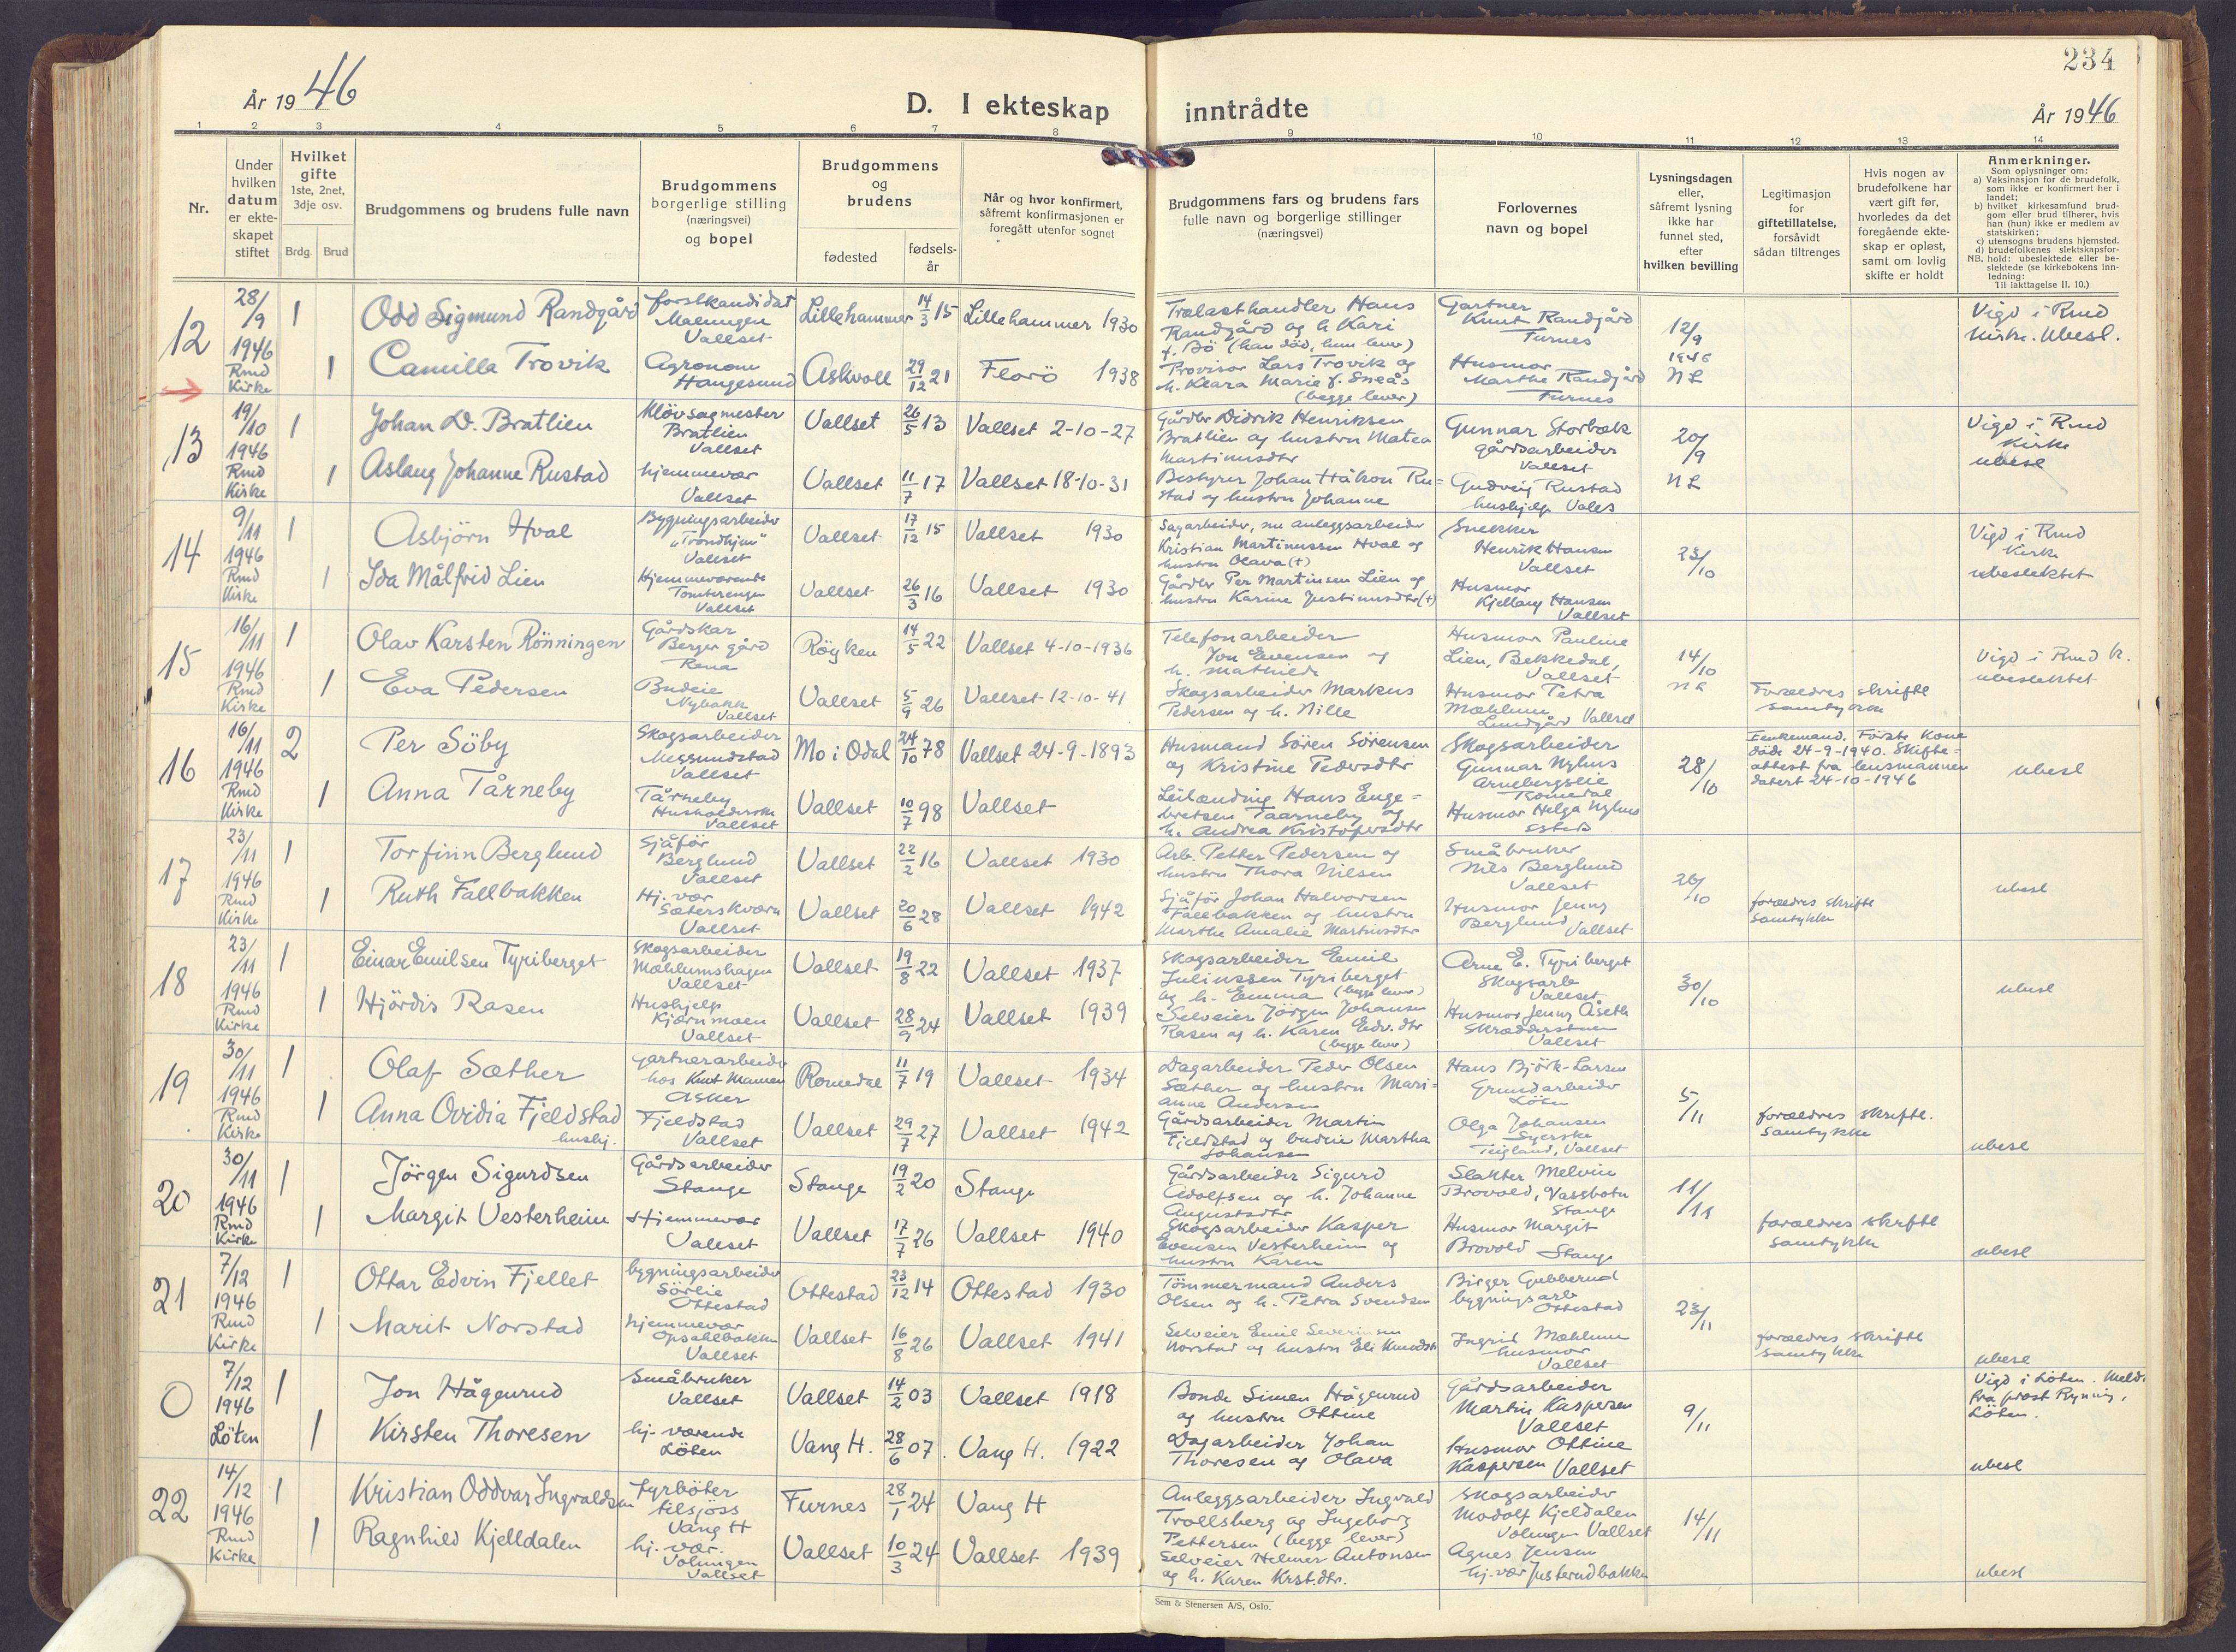 234
År 1946
D. I ekteskap inntrådte
År 1946
1 2 3 4 5 6 7 8 9 10 11 12 13 14
Nr.
Under hvilken datum er ekteskapet stiftet
Hvilket gifte 1ste, 2net, 3dje osv.
Brdg. Brud
Brudgommens og brudens fulle navn
Brudgommens borgerlige stilling (næringsvei) og bopel
Brudgommens og brudens
fødested
fødselsår
Når og hvor konfirmert, såfremt konfirmasjonen er foregått utenfor sognet
Brudgommens fars og brudens fars fulle navn og borgerlige stillinger (næringsvei)
Forlovernes navn og bopel
Lysningsdagen eller, såfremt lysning ikke har funnet sted, efter hvilken bevilling
Legitimasjon for giftetillatelse, forsåvidt sådan tiltrenges
Hvis nogen av brudefolkene har vært gift før, hvorledes da det foregående ekteskap er opløst, samt om lovlig skifte er holdt
Anmerkninger.
Som oplysninger om:
a) Vaksinasjon for de brudefolk, som ikke er konfirmert her i landet;
b) hvilket kirkesamfund brudgom eller brud tilhører, hvis han (hun) ikke er medlem av statskirken;
c) utensogns brudens hjemsted.
d) brudefolkenes slektskapsforhold: ubeslektede eller beslektede (se kirkebokens innledning:
NB.
Til iakttagelse II. 10.)
12 28/9 1946 Rmd Kirke 1
Odd Sigmund Randgård
forstkandidat Malungen Vallset
Lillehammer 14/3 15 Lillehammer 1930
Trælasthandler Hans Randgård og h Kari f. Bö (han död, hun lever)
Gartner Knut Randgård Furnes
12/9 1946 NL
Vigd i Rmd Kirke. Ubesl.
1 Camilla Trovik
Agronom Haugesund
Askvoll 29/12 21 Florö 1938
Provisor Lars Trovik og h. Klara Marie f. Sneås (begge lever)
Husmor Marthe Randgård Furnes
13 19/10 1946 Rmd Kirke 1
Johan D. Bratlien
Klövsagmester Bratlien Vallset
Vallset 26/5 13 Vallset 2-10-27
Gårdbr Didrik Henriksen Bratlien og hustru Matea Martinusdtr
Gunnar Storbæk gårdsarbeider Vallset
20/9 NL
Vigd i Rmd Kirke ubesl
1 Aslaug Johanne Rustad
hjemmevær Vallset
Vallset 11/7 17 Vallset 18-10-31
Bestyrer Johan Håkon Rustad og hustru Johanne
Gudveig Rustad hushjelp Valls
14 9/11 1946 Rmd Kirke 1
Asbjörn Hval
Bygningsarbeider "Trondhjem" Vallset
Vallset 17/12 15 Vallset 1930
Sagarbeider, nu anleggsarbeider Kristian Martinussen Hval og hustru Olava (†)
Snekker Henrik Hansen Vallset
23/10
Vigd i Rmd Kirke ubeslektet
1 Ida Målfrid Lien
Hjemmeværende Tomterengen Vallset
Vallset 26/3 16 Vallset 1930
Gårdbr Per Martinsen Lien og hustru Karine Justinusdtr (†)
Husmor Kjellaug Hansen Vallset
15 16/11 1946 Rmd Kirke 1
Olav Karsten Rönningen
Gårdskar Berger gård Rena
Röyken 14/5 22 Vallset 4-10-1936
Telefonarbeider Jon Evensen og h. Mathilde
Husmor Pauline Lien, Bekkedal, Vallset
14/10 NL
Vigd i Rmd K. ubeslektet
1 Eva Pedersen
Budeie Nybakk Vallset
Vallset 5/9 26 Vallset 12-10-41
Skogsarbeider Markus Pedersen og h. Nille
Husmor Petra Mæhlum Lundgård Vallset
Foreldres skriftl samtykke
16 16/11 1946 Rmd Kirke 2
Per Söby
Skogsarbeider Megrundstad Vallset
Mo i Odal 24/10 78 Vallset 24-9-1893
Husmand Sören Sörensen og Kristine Pedersdtr
Skogsarbeider Gunnar Nyhus Arnebergseie Romedal
28/10
Enkemand. Förste kone döde 24-9-1940. Skifteattest fra lensmannen datert 24-10-1946
ubesl
1 Anna Tårneby
Tårneby Husholderske Vallset
Vallset 10/7 98 Vallset
Leilænding Hans Engebretsen Taarneby og h. Andrea Kristofersdtr
Husmor Helga Nyhus
17 23/11 1946 Rmd Kirke 1
Torfinn Berglund
Sjåför Berglund Vallset
Vallset 22/2 16 Vallset 1930
Arb. Petter Pedersen og hustru Thora Nilsen
Småbruker Nils Berglund Vallset
26/10
ubesl
1 Ruth Fallbakken
Hj. vær Sæterskværn Vallset
Vallset 20/6 28 Vallset 1942
Sjåför Johan Halvorsen Fallbakken og hustru Marthe Amalie Martinusdtr
Husmor Jenny Berglund Vallset
foreldres skriftl samtykke
18 23/11 1946 Rmd Kirke 1
Einar Emilsen Tyriberget
Skogsarbeider Mæhlumshagen Vallset
Vallset 19/8 22 Vallset 1937
Skogsarbeider Emil Juliussen Tyriberget og h. Emma (begge lever)
Arne E. Tyriberget Skogsarb Vallset
30/10
ubesl
1 Hjördis Rasen
Hushjelp Kjernmoen Vallset
Vallset 28/9 24 Vallset 1939
Selveier Jörgen Johansen Rasen og h. Karen Edv. dtr (begge lever)
Husmor Jenny Åseth Skrædderstuen Vallset
19 30/11 1946 Rmd Kirke 1
Olaf Sæther
Gartnerarbeider hos Knut Mamen Asker
Romedal 11/7 19 Vallset 1934
Dagarbeider Peder Olsen Sæther og hustru Marianne Andersen
Hans Björk-Larsen Grundarbeider Löten
5/11
1 Anna Ovidia Fjeldstad hushj.
Fjeldstad Vallset
Vallset 29/7 27 Vallset 1942
Gårdsarbeider Martin Fjeldstad og budeie Martha Johansen
Olga Johansen Syerske Teigland, Vallset
foreldres skriftl. samtykke
ubesl
20 30/11 1946 Rmd Kirke 1
Jörgen Sigurdsen
Gårdsarbeider Stange
Stange 19/2 20 Stange
Gårdsarbeider Sigurd Adolfsen og h. Johanne Augustsdtr
Slakter Melvin Brovold, Vassbotn Stange
11/11
1 Margit Vesterheim
Hjemmevær Vallset
Vallset 17/7 26 Vallset 1940
Skogsarbeider Kasper Evensen Vesterheim og hustru Karen
Husmor Margit Brovold Stange
foreldres skriftl samtykke
ubesl
21 7/12 1946 Rmd Kirke 1
Ottar Edvin Fjellet
bygningsarbeider Sörlie Ottestad
Ottestad 23/12 14 Ottestad 1930
Tömmermand Anders Olsen og h. Petra Svendsen
Birger Gubberud bygningsarb Ottestad
23/11
1 Marit Norstad
hjemmevær Opsahlbakken Vallset
Vallset 16/8 26 Vallset 1941
Selveier Emil Severinsen Norstad og hustru Eli Knudsdtr
Ingrid Mæhlum husmor Vallset
foreldres skriftl samtykke
ubesl
0 7/12 1946 Löten 1
Jon Hågenrud
Småbruker Vallset
Vallset 14/2 03 Vallset 1918
Bonde Simen Hågenrud og hustru Ottine
Gårdsarbeider Martin Kaspersen Vallset
9/11
Vigd i Löten. Meldt fra prest Rynning, Löten.
1 Kirsten Thoresen
hj. værende Löten
Vang H. 28/6 07. Vang H. 1922
Dagarbeider Johan Thoresen og Olava
Husmor Ottine Kaspersen Vallset
ubesl
22 14/12 1946 Rmd Kirke 1
Kristian Oddvar Ingvaldsen
Fyrböter tilsjöss Vang H
Furnes 28/1 24 Vang H
Anleggsarbeider Ingvald Trollsberg og Ingeborg Pettersen (begge lever)
Skogsarbeider Modolf Kjeldalen Volungen Vallset
14/11
1 Ragnhild Kjelldalen
hj. vær. Volungen Vallset
Vallset 10/3 24 Vallset 1939
Selveier Helmer Antonsen og h. Karen Krst.dtr.
Agnes Jensen hj.vær Justerudbakken
ubesl
Sem & Stenersen A/S, Oslo.